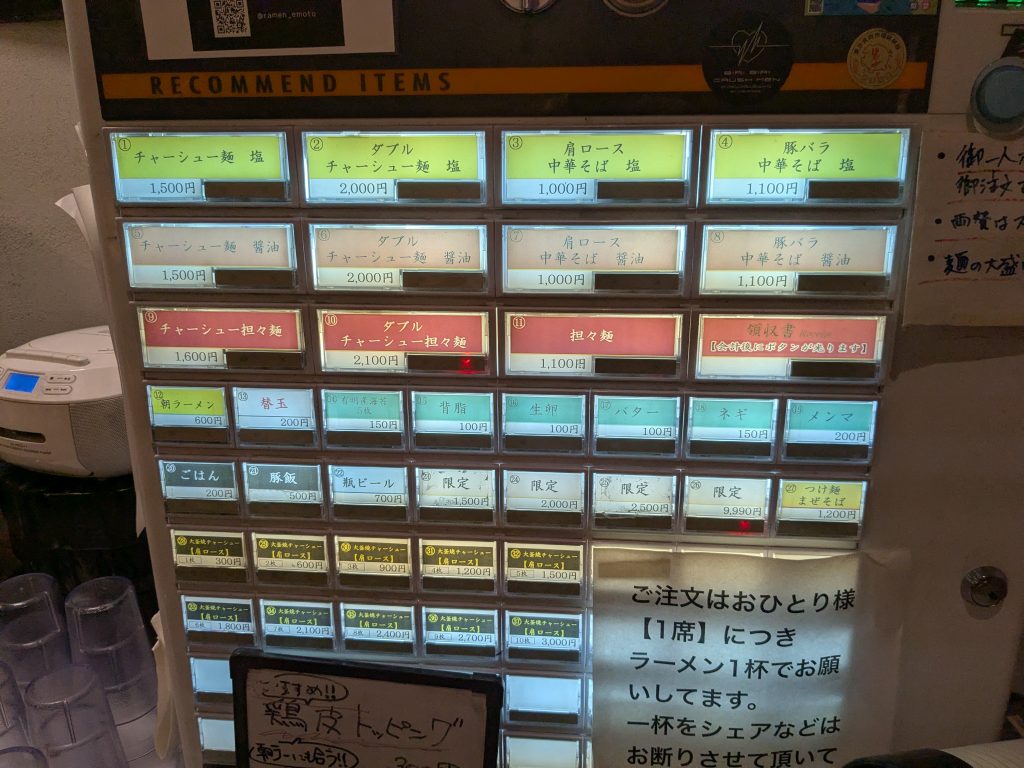 @ramen_emoto
RECOMMEND ITEMS
① チャーシュー麺 塩
1,500円
② ダブル
チャーシュー麺 塩
2,000円
③ 肩ロース
中華そば 塩
1,000円
④ 豚バラ
中華そば 塩
1,100円
⑤ チャーシュー麺 醤油
1,500円
⑥ ダブル
チャーシュー麺 醤油
2,000円
⑦ 肩ロース
中華そば 醤油
1,000円
⑧ 豚バラ
中華そば 醤油
1,100円
⑨ チャーシュー担々麺
1,600円
⑩ ダブル
チャーシュー担々麺
2,100円
⑪ 担々麺
1,100円
領収書 Receipt
【会計後にボタンが光ります】
⑫ 朝ラーメン
600円
⑬ 替玉
200円
有明産海苔
5枚
150円
⑮ 背脂
100円
⑯ 生卵
100円
⑰ バター
100円
⑱ ネギ
150円
⑲ メンマ
200円
⑳ ごはん
200円
㉑ 豚飯
500円
㉒ 瓶ビール
700円
㉓ 限定
1,500円
㉔ 限定
2,000円
㉕ 限定
2,500円
㉖ 限定
9,990円
㉗ つけ麺
まぜそば
1,200円
㉘ 大釜焼チャーシュー
【肩ロース】
1枚 300円
㉙ 大釜焼チャーシュー
【肩ロース】
2枚 600円
㉚ 大釜焼チャーシュー
【肩ロース】
3枚 900円
㉛ 大釜焼チャーシュー
【肩ロース】
4枚 1,200円
㉜ 大釜焼チャーシュー
【肩ロース】
5枚 1,500円
㉝ 大釜焼チャーシュー
【肩ロース】
6枚 1,800円
㉞ 大釜焼チャーシュー
【肩ロース】
7枚 2,100円
㉟ 大釜焼チャーシュー
【肩ロース】
8枚 2,400円
㊱ 大釜焼チャーシュー
【肩ロース】
9枚 2,700円
㊲ 大釜焼チャーシュー
【肩ロース】
10枚 3,000円
ご注文はおひとり様
【1席】につき
ラーメン1杯でお願
いしてます。
一杯をシェアなどは
お断りさせて頂いて
おすすめ!!
鶏皮トッピング
・御一人
御注文
・両替は
・麺の大盛